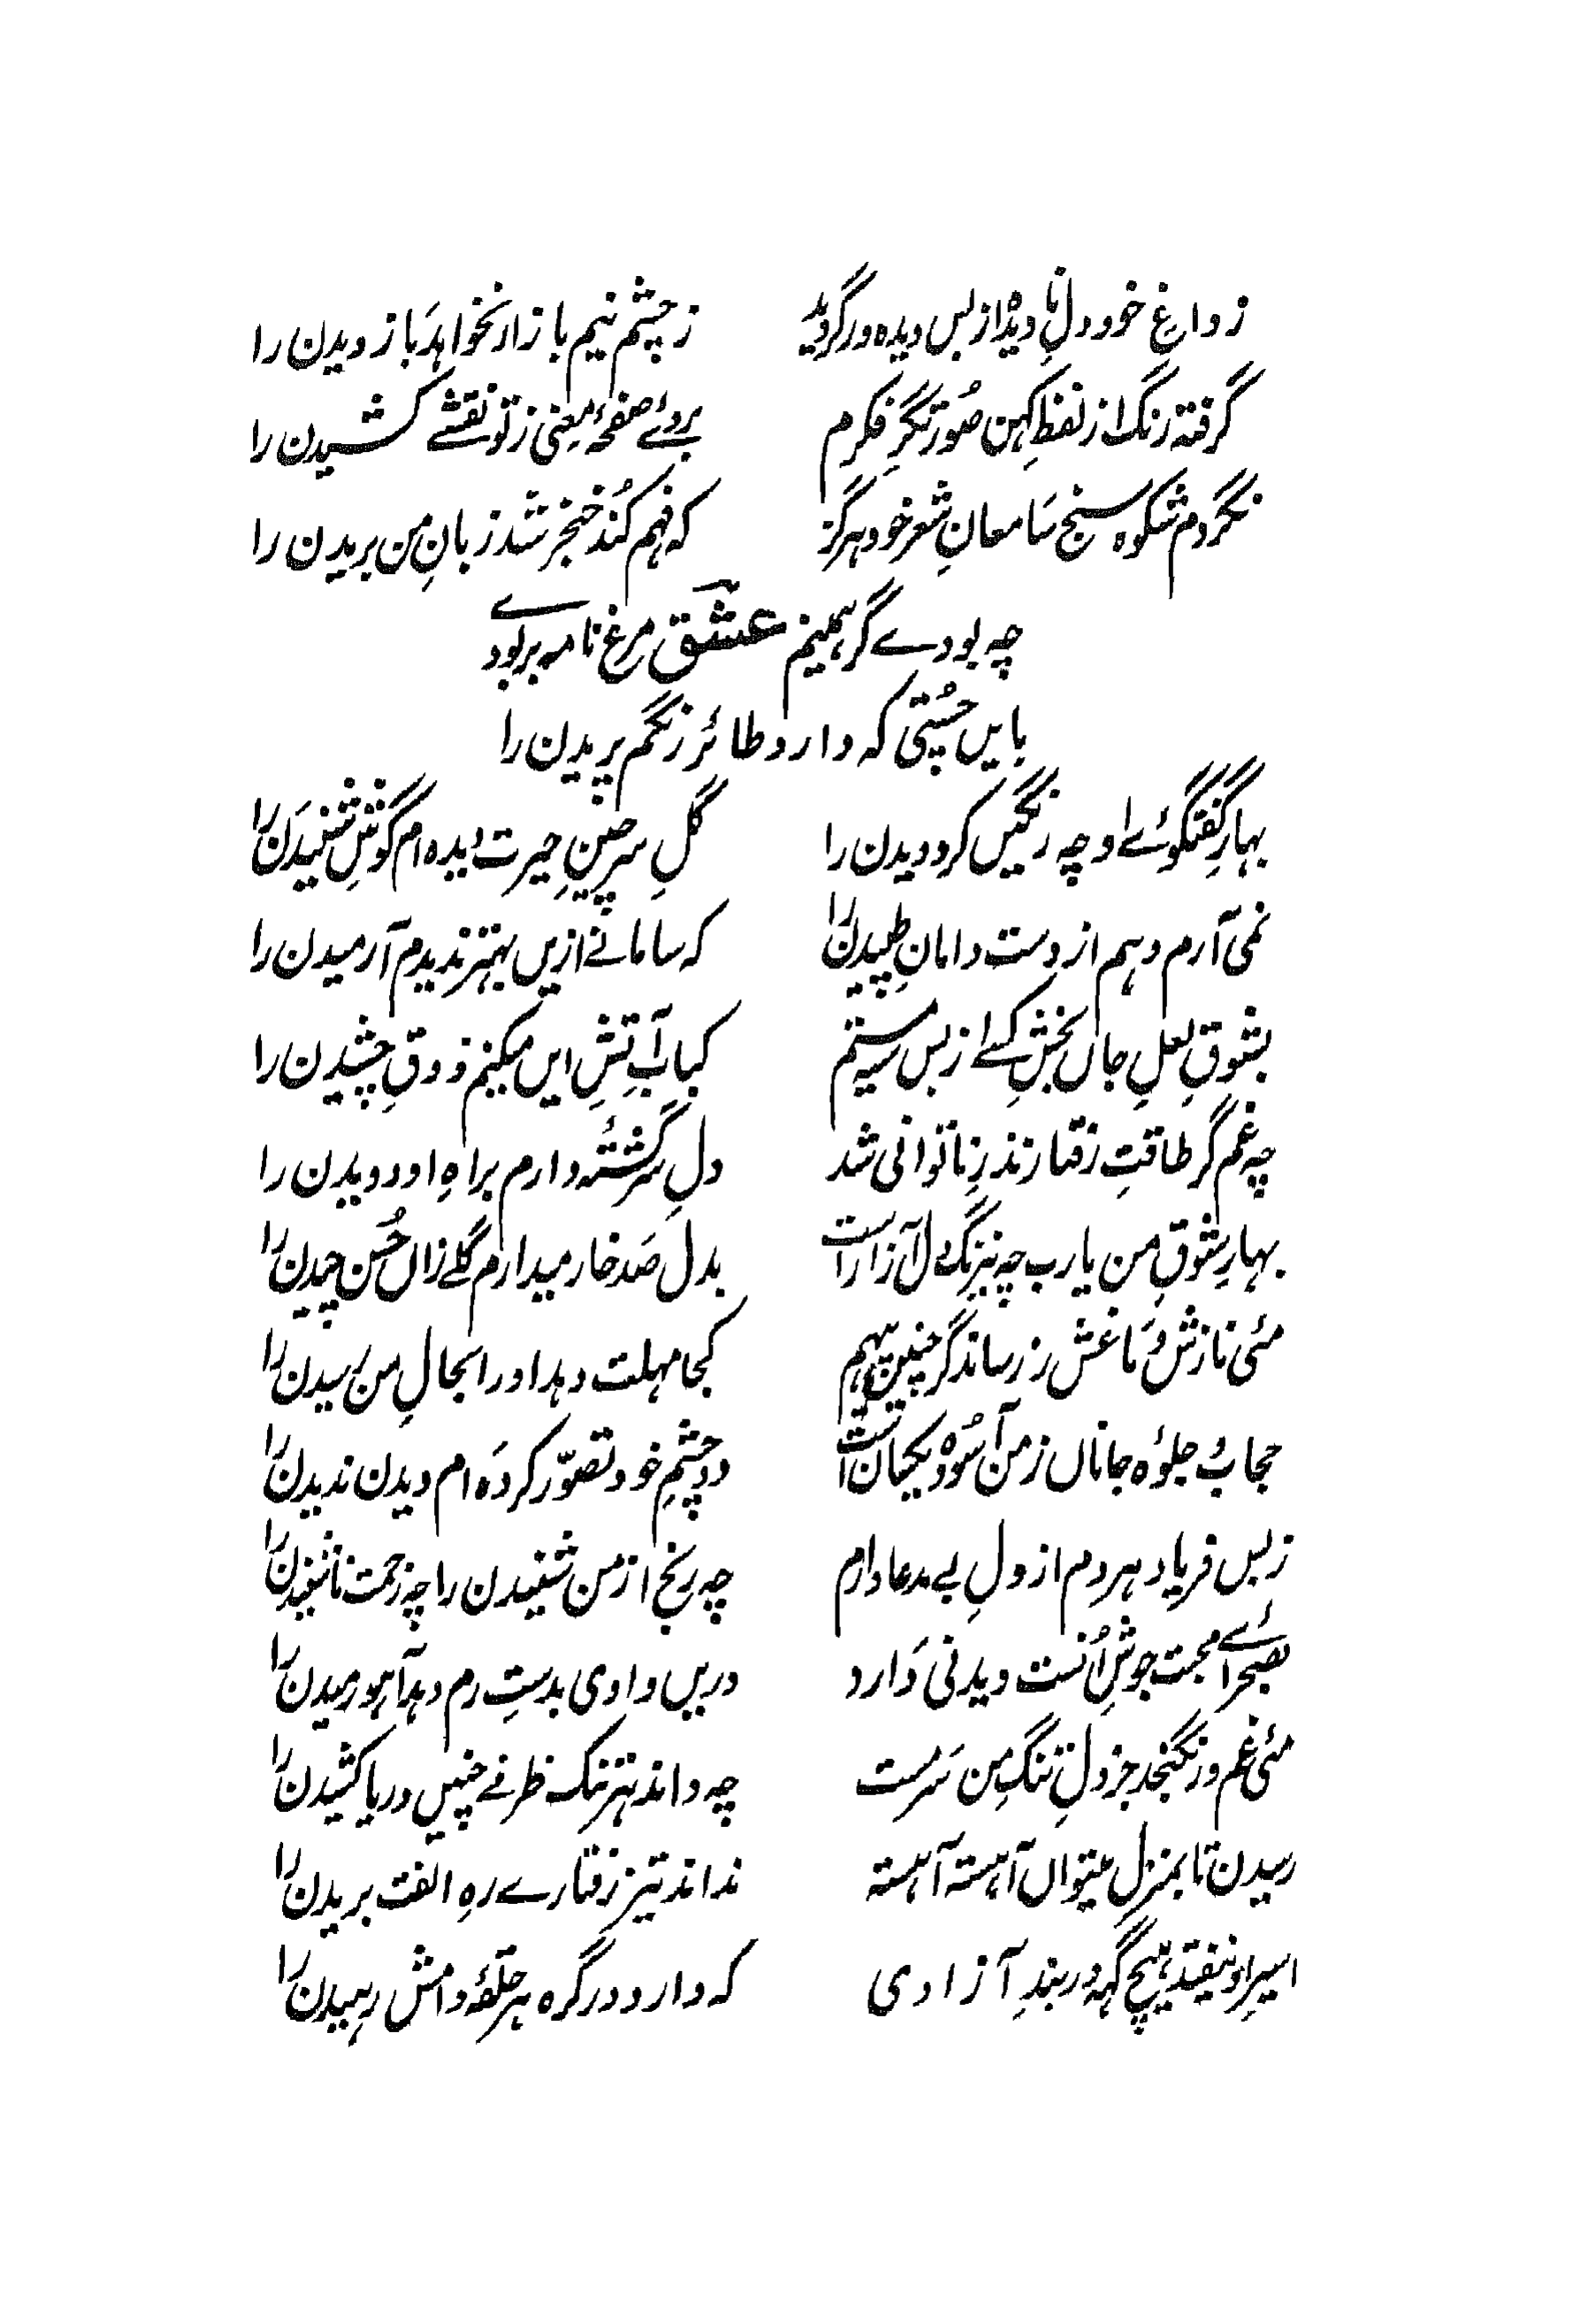 ز داغِ خود دلِ نا دیدہ از بس دیدہ ور گردید
ز چشمِ نیم باز ار نخواہد باز دیدن را
گرفتہ زنگ از لفظِ کہن صُورتگرِ فکرم
بروئے صفحۂ معنی ز نو نقشے کشیدن را
نگردم شکوہ سنج سَامعانِ شعرِ خود ہرگز
کہ فہم کُند خنجر شد زبانِ من بریدن را
چہ بودے گر ہمینم عشق مرغِ نامہ بر بودے
بایں چُستی کہ دارد طائرِ رنگم پریدن را
بہارِ گفتگوئے او چہ رنگیں کرد دیدن را
گلِ سر چینِ حیرت دیدہ ام گوشِ شنیدن را
نمی آرم دہم از دست دامانِ طپیدن را
کہ سامانے ازیں بہتر ندیدم آرمیدن را
بشوقِ لعلِ جاں بخشِ کسے از بس سیہ مستم
کبابِ آتشِ ایں میکنم ذوقِ چشیدن را
چہ غم گر طاقتِ رفتار نذرِ ناتوانی شد
دلِ سرگشتہ دارم براہِ او دویدن را
بہارِ شوقِ من یارب چہ نیرنگِ دل آزار است
بدل صَد خار میدارم گلے زاں حُسن چیدن را
مئی نازش دَماغش رز رساند گر چنیں پیہم
کجا مہلت دہد او را بحالِ من رسیدن را
حجابِ جلوۂ جاناں ز من آسُودہ یکساں است
دو چشمِ خود تصوّر کردَہ ام دیدن ندیدن را
زبس فریاد ہردم از دلِ بے مدعا دارم
چہ رنج از من شنیدن را چہ زحمت ناشنیدن را
بصحرائے محبت جوشِ اُنست دیدنی دَارد
دریں وادی بدستِ رم دہد آہو رمیدن را
مئی غم در نگنجد جز دلِ تنگِ من سَرمست
چہ داند ہر تنک ظرفے چنیں دریا کشیدن را
رسیدن تا بمنزل میتواں آہستہ آہستہ
نداند تیز رفتارے رہِ الفت بریدن را
اسیرِ او نیفتد ہیچ گہ در بندِ آزادی
کہ دارد در گرہ ہر حلقۂ دامش رہیدن را